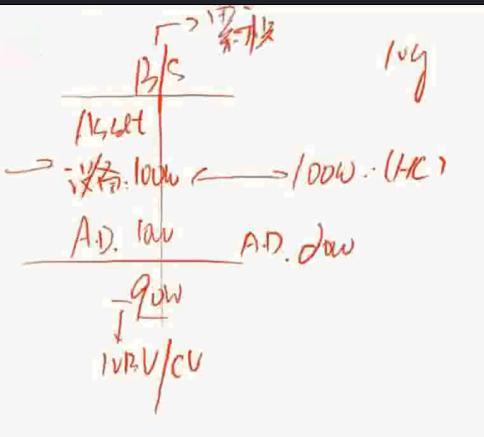 B/S
10y
Asset
设备:100w 100W..(HC)
A.D. 10w A.D. 20w
90w
NBV/CV